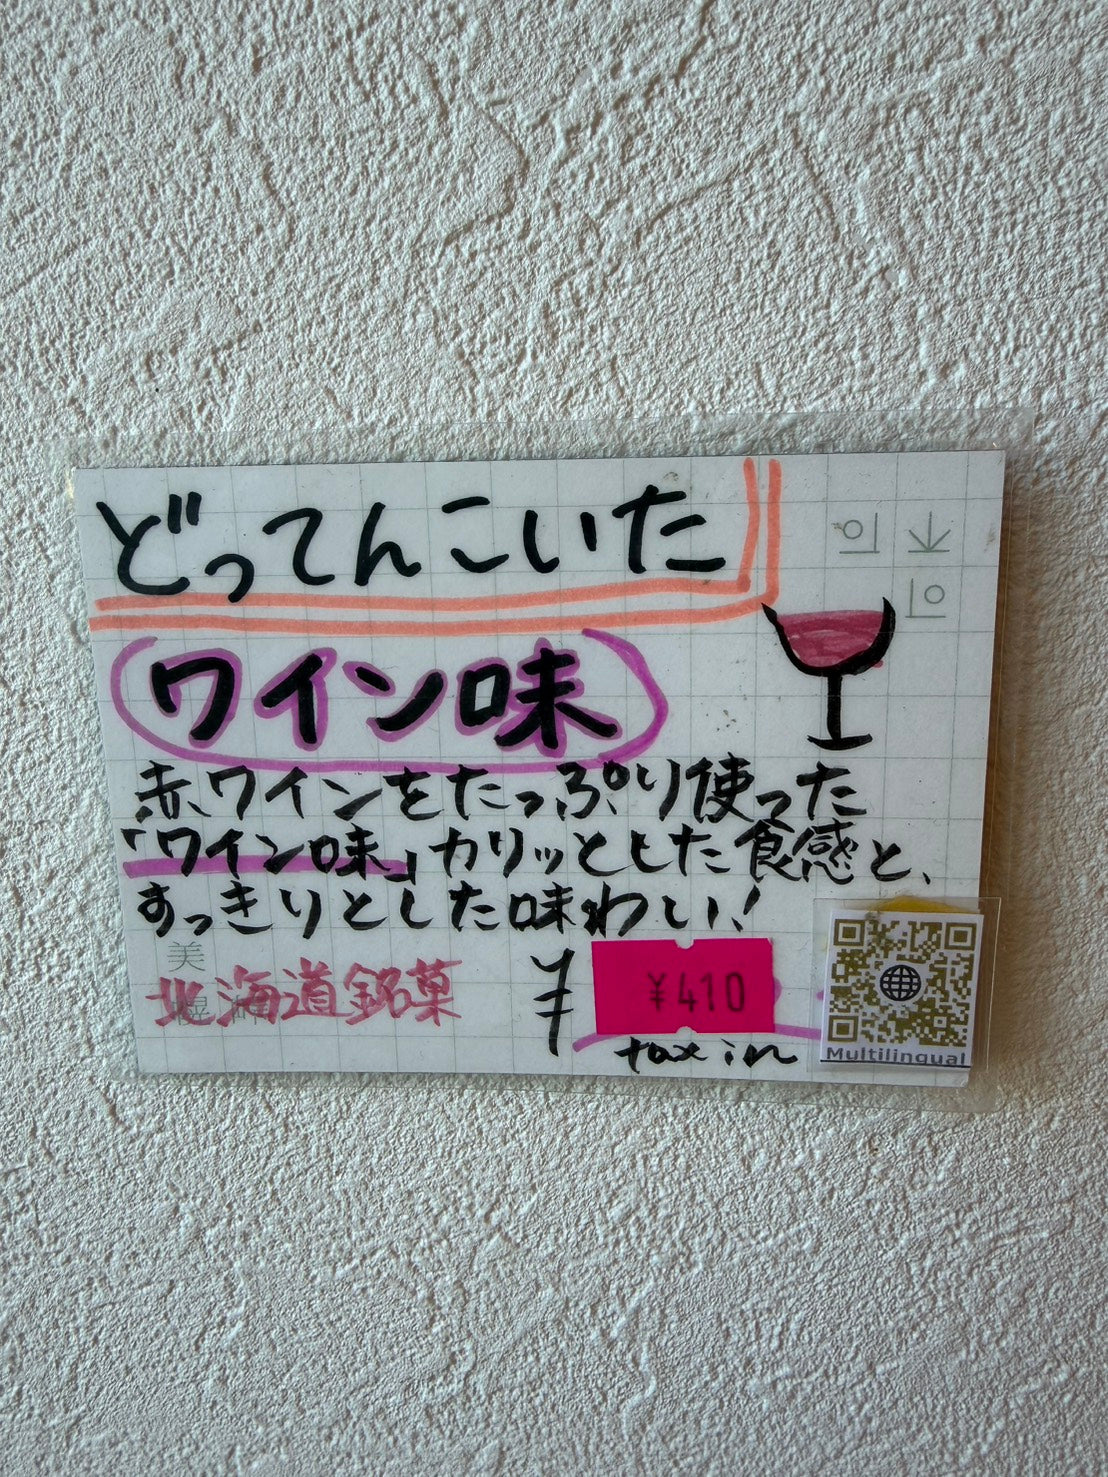 どってんこいた
ワイン味
赤ワインをたっぷり使った
「ワイン味」カリッとした食感と、
すっきりとした味わい!
美
北海道銘菓
¥
¥410
tax in
Multilingual